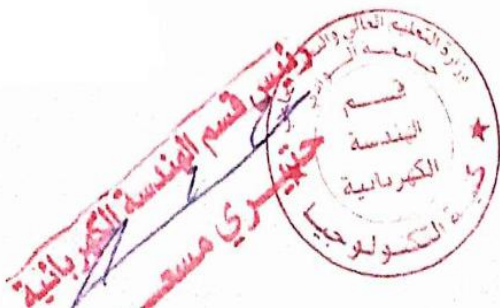 رئيس قسم الهندسة الكهربائية
وزارة التعليم العالي
جامعة الوادي
قسم
الهندسة
الكهربائية
كلية التكنولوجيا